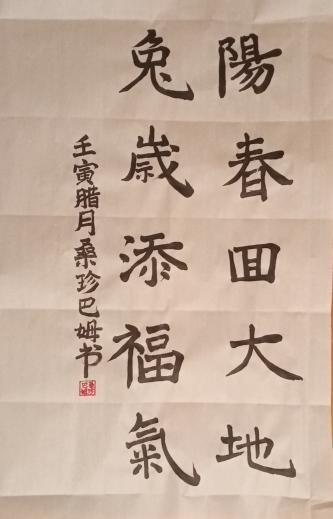 陽春回大地
兔歲添福氣
壬寅腊月桑珍巴姆书